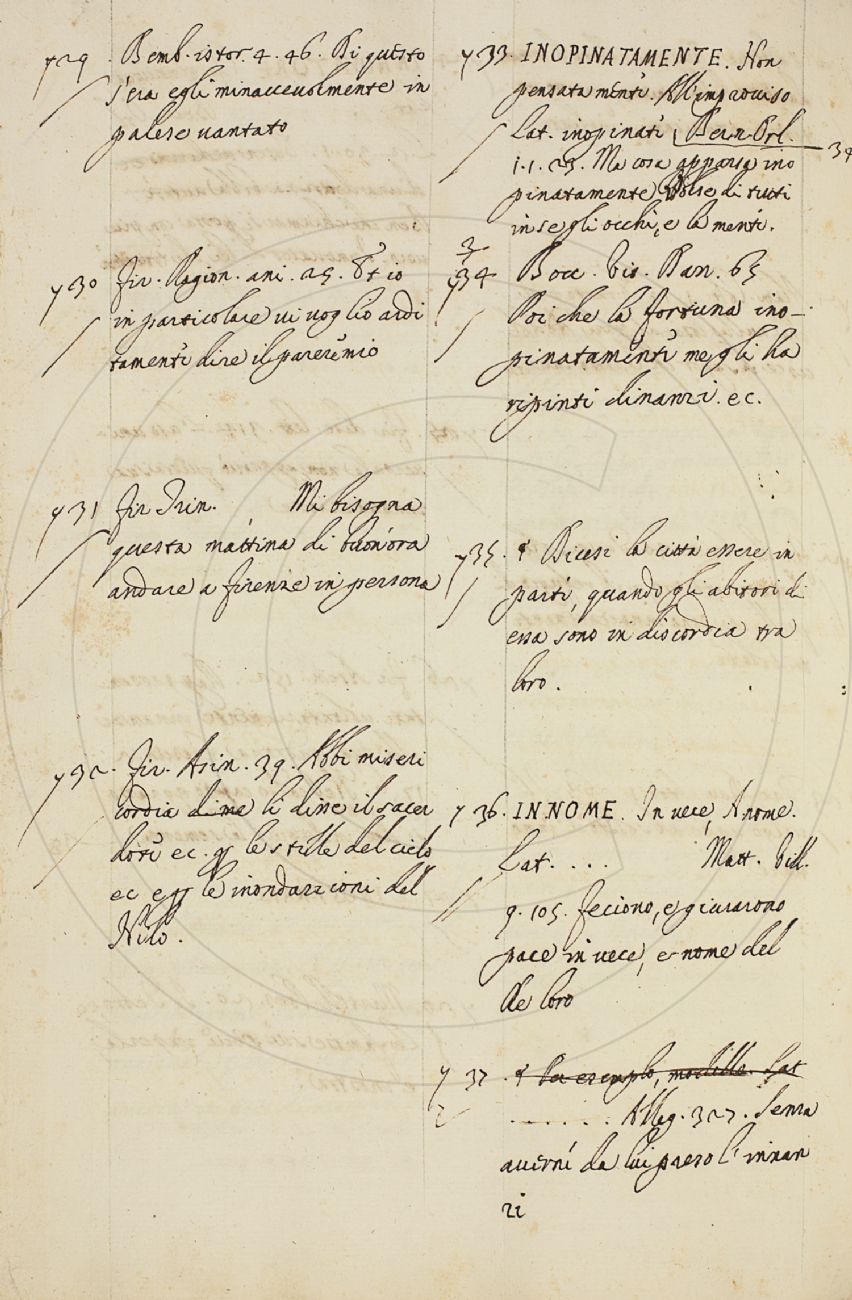 729 . Bemb. istor. 4. 46. Di questo
s'era egli minaccevolmente in
palese vantato
730 Fir. Ragion. ani. 25. Et io
in particolare vi voglio ardi
tamente dire il parer mio
731 Fir Trin. Mi bisogna
questa mattina di buon'ora
andare a Firenze in persona
732. Fir. Asin. 39. Abbi miseri
cordia dime li dire il sacer
dote ec. p le stille del cielo
ec e p le inondazioni del
Nilo.
733. INOPINATAMENTE. Non
pensata mente. All'improvviso
Lat. inopinate Bern. Orl. 34
1. 1. 23. Ma cosa apparsa ino
pinatamente Volse di tutti
in se gli occhi, e la mente.
734 Bocc. Vis. Dan. 65
Poi che la fortuna ino-
pinatamente me gli ha
ripinti dinanzi. ec.
735. § Dicesi la città essere in
parte, quando gli abitori di
essa sono in discordia tra
loro.
736. IN NOME. In vece, A nome.
Lat. . . . Matt. Vill.
9. 105. feciono, e giurarono
pace in vece, e nome del
Re loro
737 . § Per esempio, Lat
. . . . . . Alleg. 327. Senza
averne da lui preso l'innan
zi